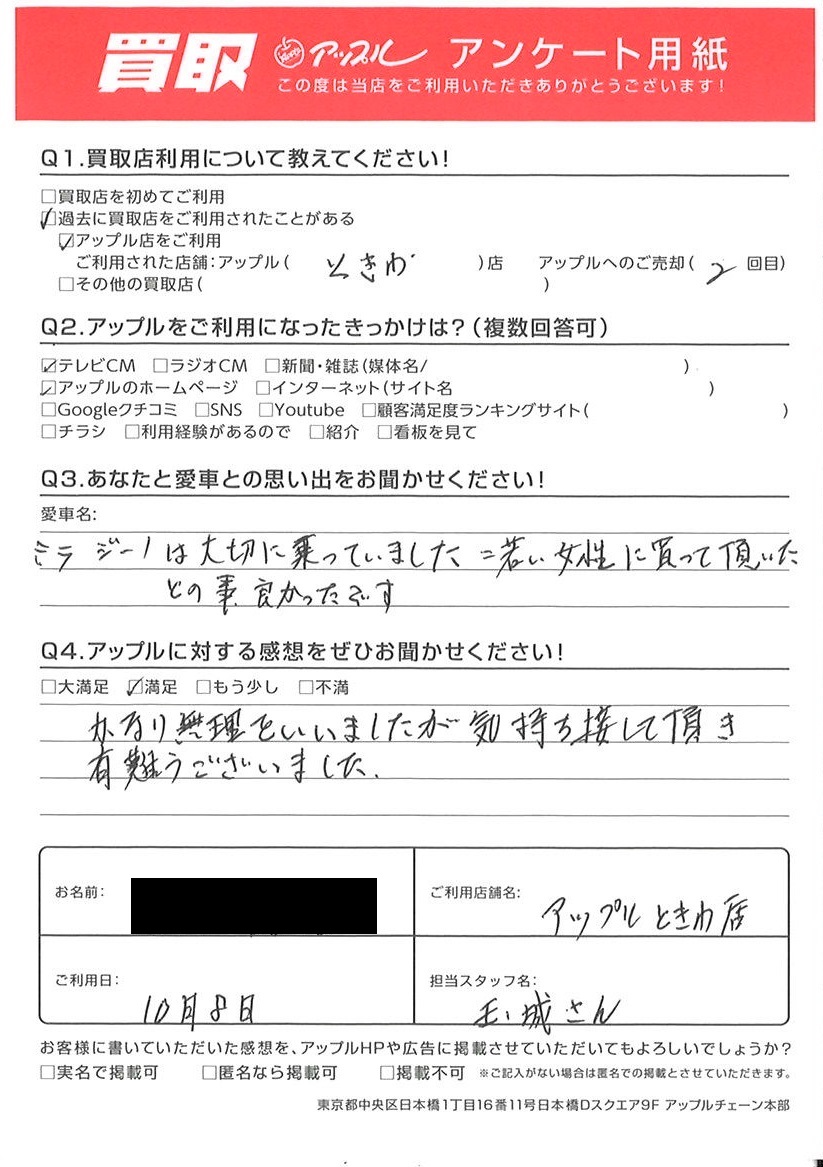 買取 アップル アンケート用紙
この度は当店をご利用いただきありがとうございます!
Q1.買取店利用について教えてください!
□買取店を初めてご利用
☑過去に買取店をご利用されたことがある
☑アップル店をご利用
ご利用された店舗:アップル( ときわ )店 アップルへのご売却( 2 回目)
□その他の買取店( )
Q2.アップルをご利用になったきっかけは?(複数回答可)
☑テレビCM □ラジオCM □新聞・雑誌(媒体名/ )
☑アップルのホームページ □インターネット(サイト名 )
□Googleクチコミ □SNS □Youtube □顧客満足度ランキングサイト( )
□チラシ □利用経験があるので □紹介 □看板を見て
Q3.あなたと愛車との思い出をお聞かせください!
愛車名:
ミラジーノは大切に乗っていました 若い女性に買って頂いた
との事、良かったです
Q4.アップルに対する感想をぜひお聞かせください!
□大満足 ☑満足 □もう少し □不満
かなり無理をいいましたが気持ち接して頂き
有難うございました.
お名前:
ご利用店舗名: アップルときわ店
ご利用日: 10月8日
担当スタッフ名: 玉城さん
お客様に書いていただいた感想を、アップルHPや広告に掲載させていただいてもよろしいでしょうか?
□実名で掲載可 □匿名なら掲載可 □掲載不可 ※ご記入がない場合は匿名での掲載とさせていただきます。
東京都中央区日本橋1丁目16番11号日本橋Dスクエア9F アップルチェーン本部